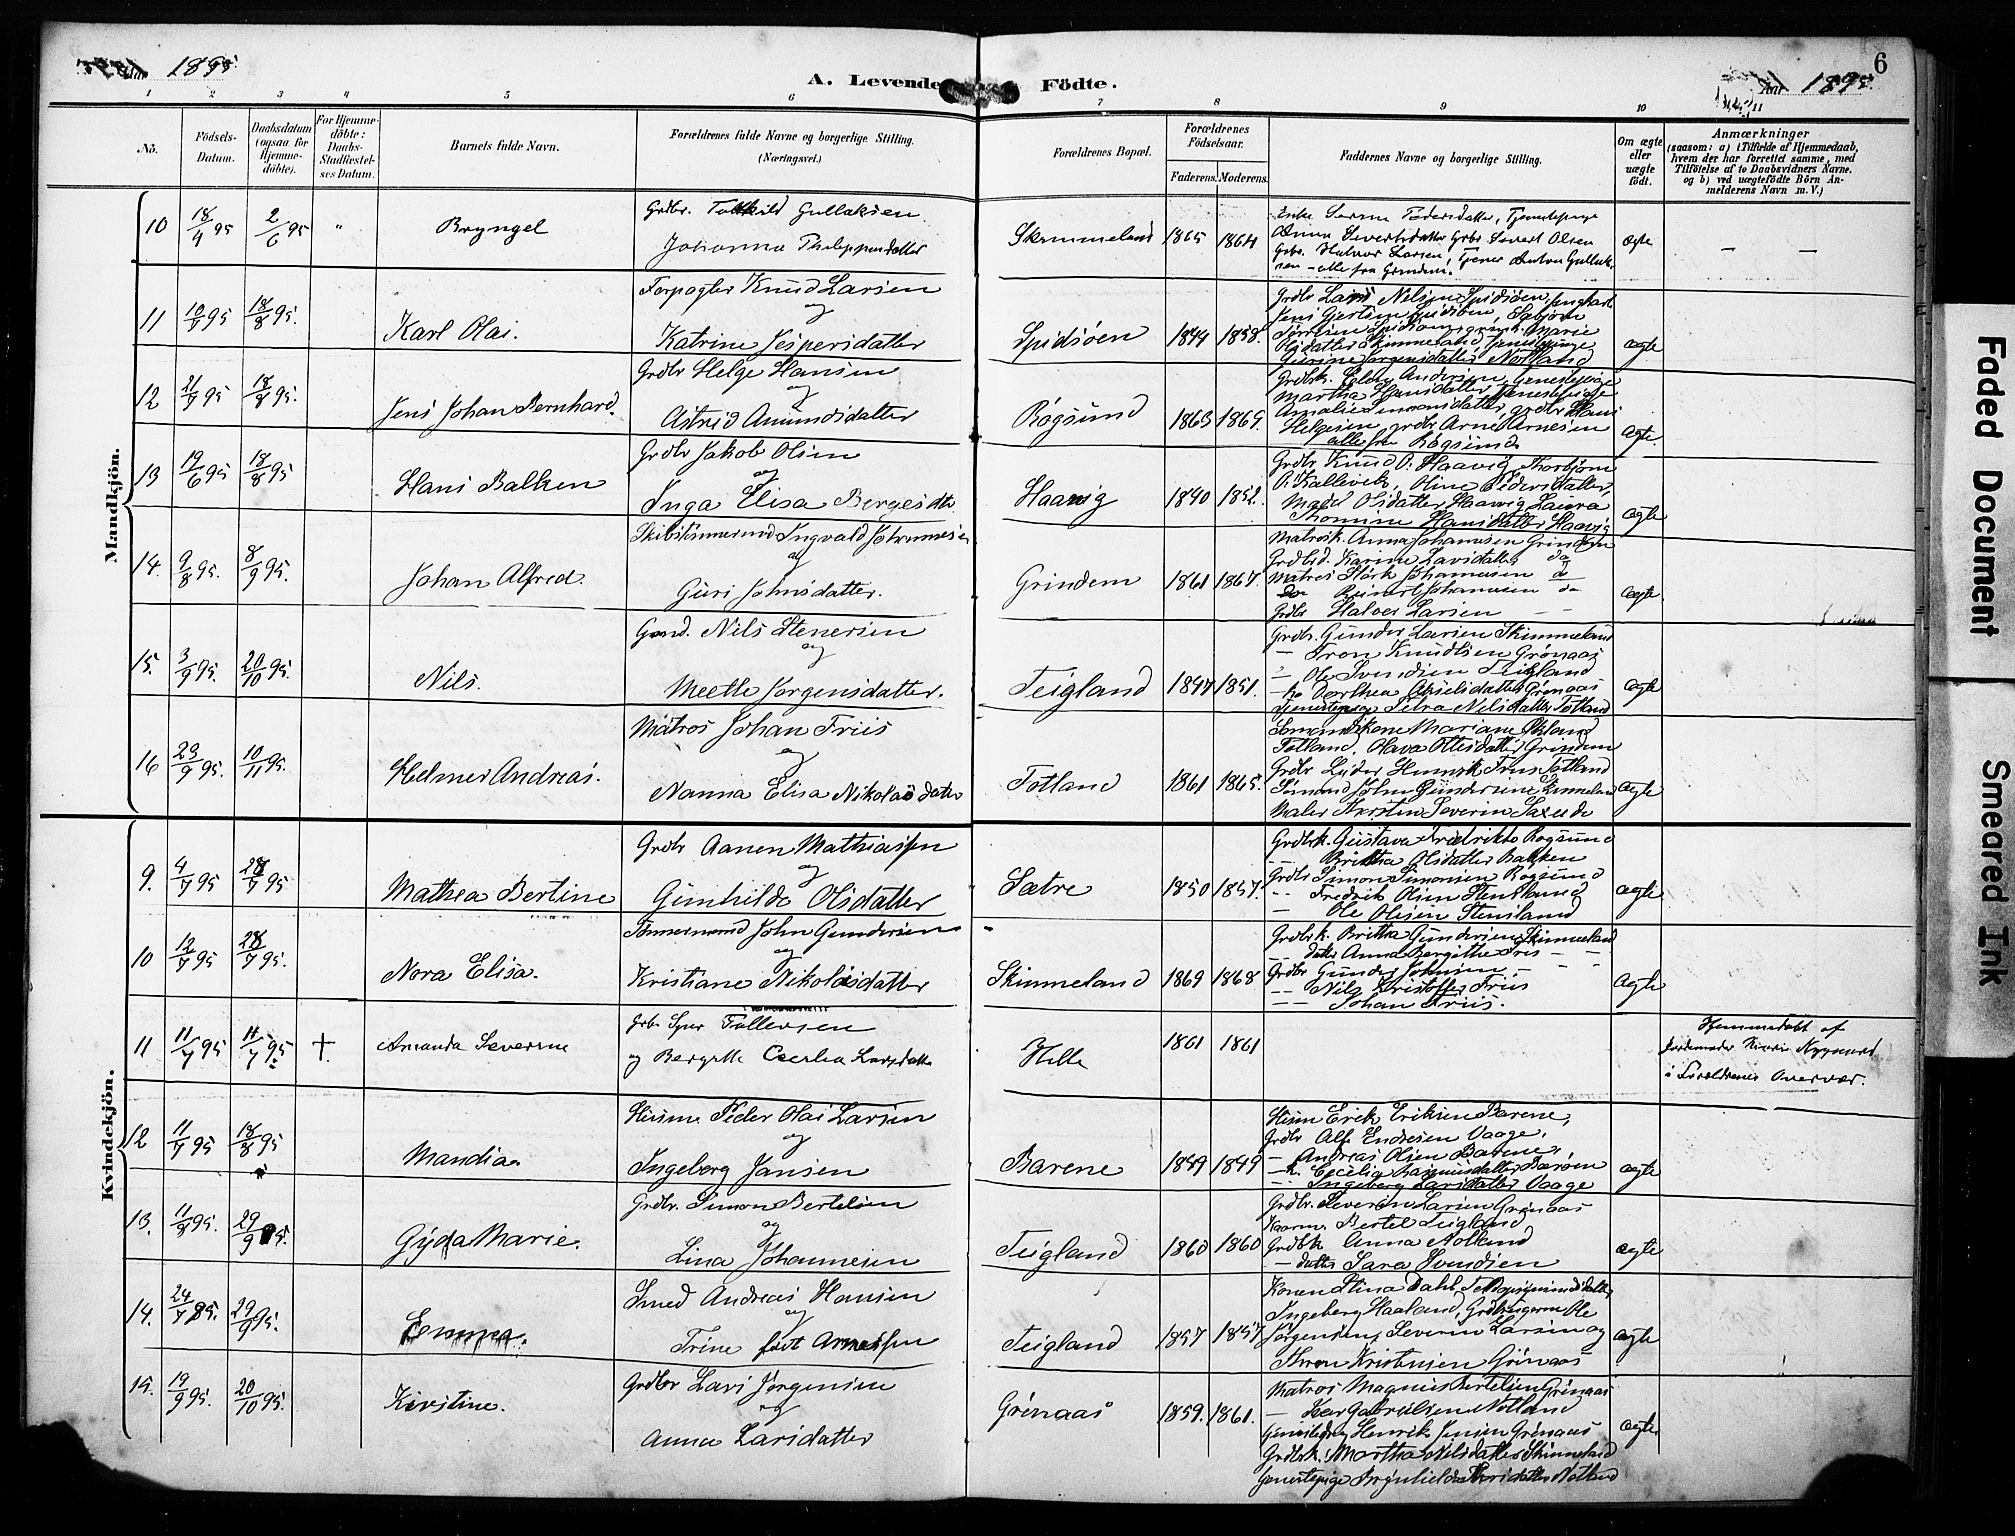 Aar 1895.
A. Levende Födte.
Aar 1895.
6
1 2 3 4 5 6 7 8 9 10 11
No.
Födsels-Datum.
Daabsdatum (ogsaa for Hjemme-döbte).
For Hjemme-döbte: Daabs-Stadfæstel-ses Datum.
Barnets fulde Navn.
Forældrenes fulde Navne og borgerlige Stilling.
(Næringsvei.)
Forældrenes Bopæl.
Forældrenes Födselsaar.
Faderens. Moderens.
Faddernes Navne og borgerlige Stilling.
Om ægte eller uægte födt.
Anmærkninger
(saasom: a) i Tilfælde af Hjemmedaab,
hvem der har forrettet samme, med
Tilföielse af to Daabsvidners Navne,
og b) ved uægtefödte Börn An-
melderens Navn m. V.)
Mandkjön.
10 18/4 95 2/6 95 " Bryngel
Grdbr. Gullaksen
Johanna
Skimmeland 1865 1864
Severt Olsen
Gbr. Halvor Larsen, Tjener Anton Gullak-
sen - alle fra Grindem.
Ægte — —
11 10/7 95 18/8 95. Karl Olai.
Forpagter Knud Larsen
og
Katrine Jespersdatter
Spidsöen 1844 1858.
Grdbr Lars Nilsen Spidsöen,
Gurine Jørgensdatter, Notland
ægte
12 21/7 95 18/8 95. Jens Johan Bernhard.
Grdbr Helge Hansen
og
Astrid Amundsdatter
Rögsund 1863 1869.
Martha Hansdatter,
Amalie Simonsdatter, grdbr Hans
Helgesen, grdbr Arne Arnesen
alle fra Rögsund
ægte.
13 19/6 95 18/8 95. Hans Balken
Grdbr Jakob Olsen
og
Inga Elisa Bergesdtr.
Haavig 1840 1852.
Grdbr Knud O. Haavig, Thorbjørn
O. Kallevik, Oline Pedersdatter,
Olsdatter Haavig Laura
Thomine Hansdatter Haavig
ægte
14. 9/8 95. 8/9 95. Johan Alfred.
Skibstömmermd Ingvald Johannesen
og
Guri Johnsdatter.
Grindem 1861 1867.
Matrosk. Anna Johannesen Grindem
Grdbrd. Karine Larsdatter do
Matros Johannesen do
Reinert Johannesen do
Grdbr Halvor Larsen - -
ægte.
15. 3/9 95. 20/10 95. Nils.
Nils Stenersen
og
Meethe Jørgensdatter.
Teigland 1847 1851.
Grdbr. Gunder Larsen Skimmeland
— Tron Knudsen Grønaas
— Ole Svendsen Teigland
— k. Dorthea Akselsdatter Grønaas
Tjenestepige Petra Nilsdatter Totland
ægte
16 23/9 95. 10/11 95. Helmer Andreas.
Matros Johan Friis
og
Nanna Elisa Nikolaisdatter
Totland 1861 1865.
Sömandskone Mariane
Totland, Olava Ottesdatter Grindem
Grdbr Friis Totland
Sömand John Gundersen Skimmeland
Maler Thorsten Severin
ægte
Kvindekjön.
9. 4/7 95 28/7 95 Mathea Bertine
Grdbr Aanen Mathiassen
og
Gunhilde Olsdatter
Sætre 1850 1857.
Grdbrk. Gustava Fredrikke Rogsund
-- Britha Olsdatter Bakken
Grdbr Simon Simonsen Rogsund
-- Fredrik Olsen Stensland
— Ole Olsen Stensland
ægte
10 12/7 95 28/7 95. Nora Elisa.
Tömmermand John Gundersen
og
Kristiane Nikolaisdatter
Skimmeland 1869 1868
Grdbrk. Britha Gundersen Skimmeland
-- datter Anna Bergithe Friis — -
Grdbr Gunder Johnsen - - -
-- Nils Kristoffer Friis
— — Johan Friis.
ægte
11 11/7 95 11/7 95. † Amanda Severine
Grbr Tollevsen
og Cecilia Larsdatter
Helle 1861 1861
Hjemmedöbt af
Jordemoder Nygaard
i Forældrenes Overvær.
12 11/7 95 18/8 95 Mandia
Husmd Peder Olai Larsen
og
Ingeborg Jansen
Barene 1849 1849
Husm Erik Eriksen Barene,
Grdbr Alf Endresen Vaage,
— Andreas Olsen Barene,
—k. Cecilia Rasmusdatter Barene
-- Ingeborg Larsdatter Vaage
ægte
13. 11/8 95. 29/9 95. Gyda Marie.
Grdbr. Simon Bertelsen
og
Lina Johannesen
Teigland 1860 1860
Grdbr. Severin Larsen Grønaas
Bertel Teigland
Grdbrk Anna Notland
— datter Sara Svendsen
ægte
14. 24/7 95. 29/9 95. Emma.
Smed Andreas Hansen
og
Trine født Arnessen
Teigland 1857 1857
Konen Stina Dahl,
Ingeborg Haaland, Grdbrugerne Ole
Jørgensen, Severin Larsen og
Thron Kristensen Grønaas
ægte
15. 19/9 95. 20/10 95. Kirstine.
Grdbr Lars Jørgensen
og
Anna Larsdatter
Grönaas 1859. 1861.
Matros Magnus Bertelsen Grönaas
— Gabrielsen Notland
Henrik Jensen Grönaas
Grdbrk. Martha Nilsdatter Skimmeland
Tjenestepige Notland
ægte
Faded Document Smeared Ink